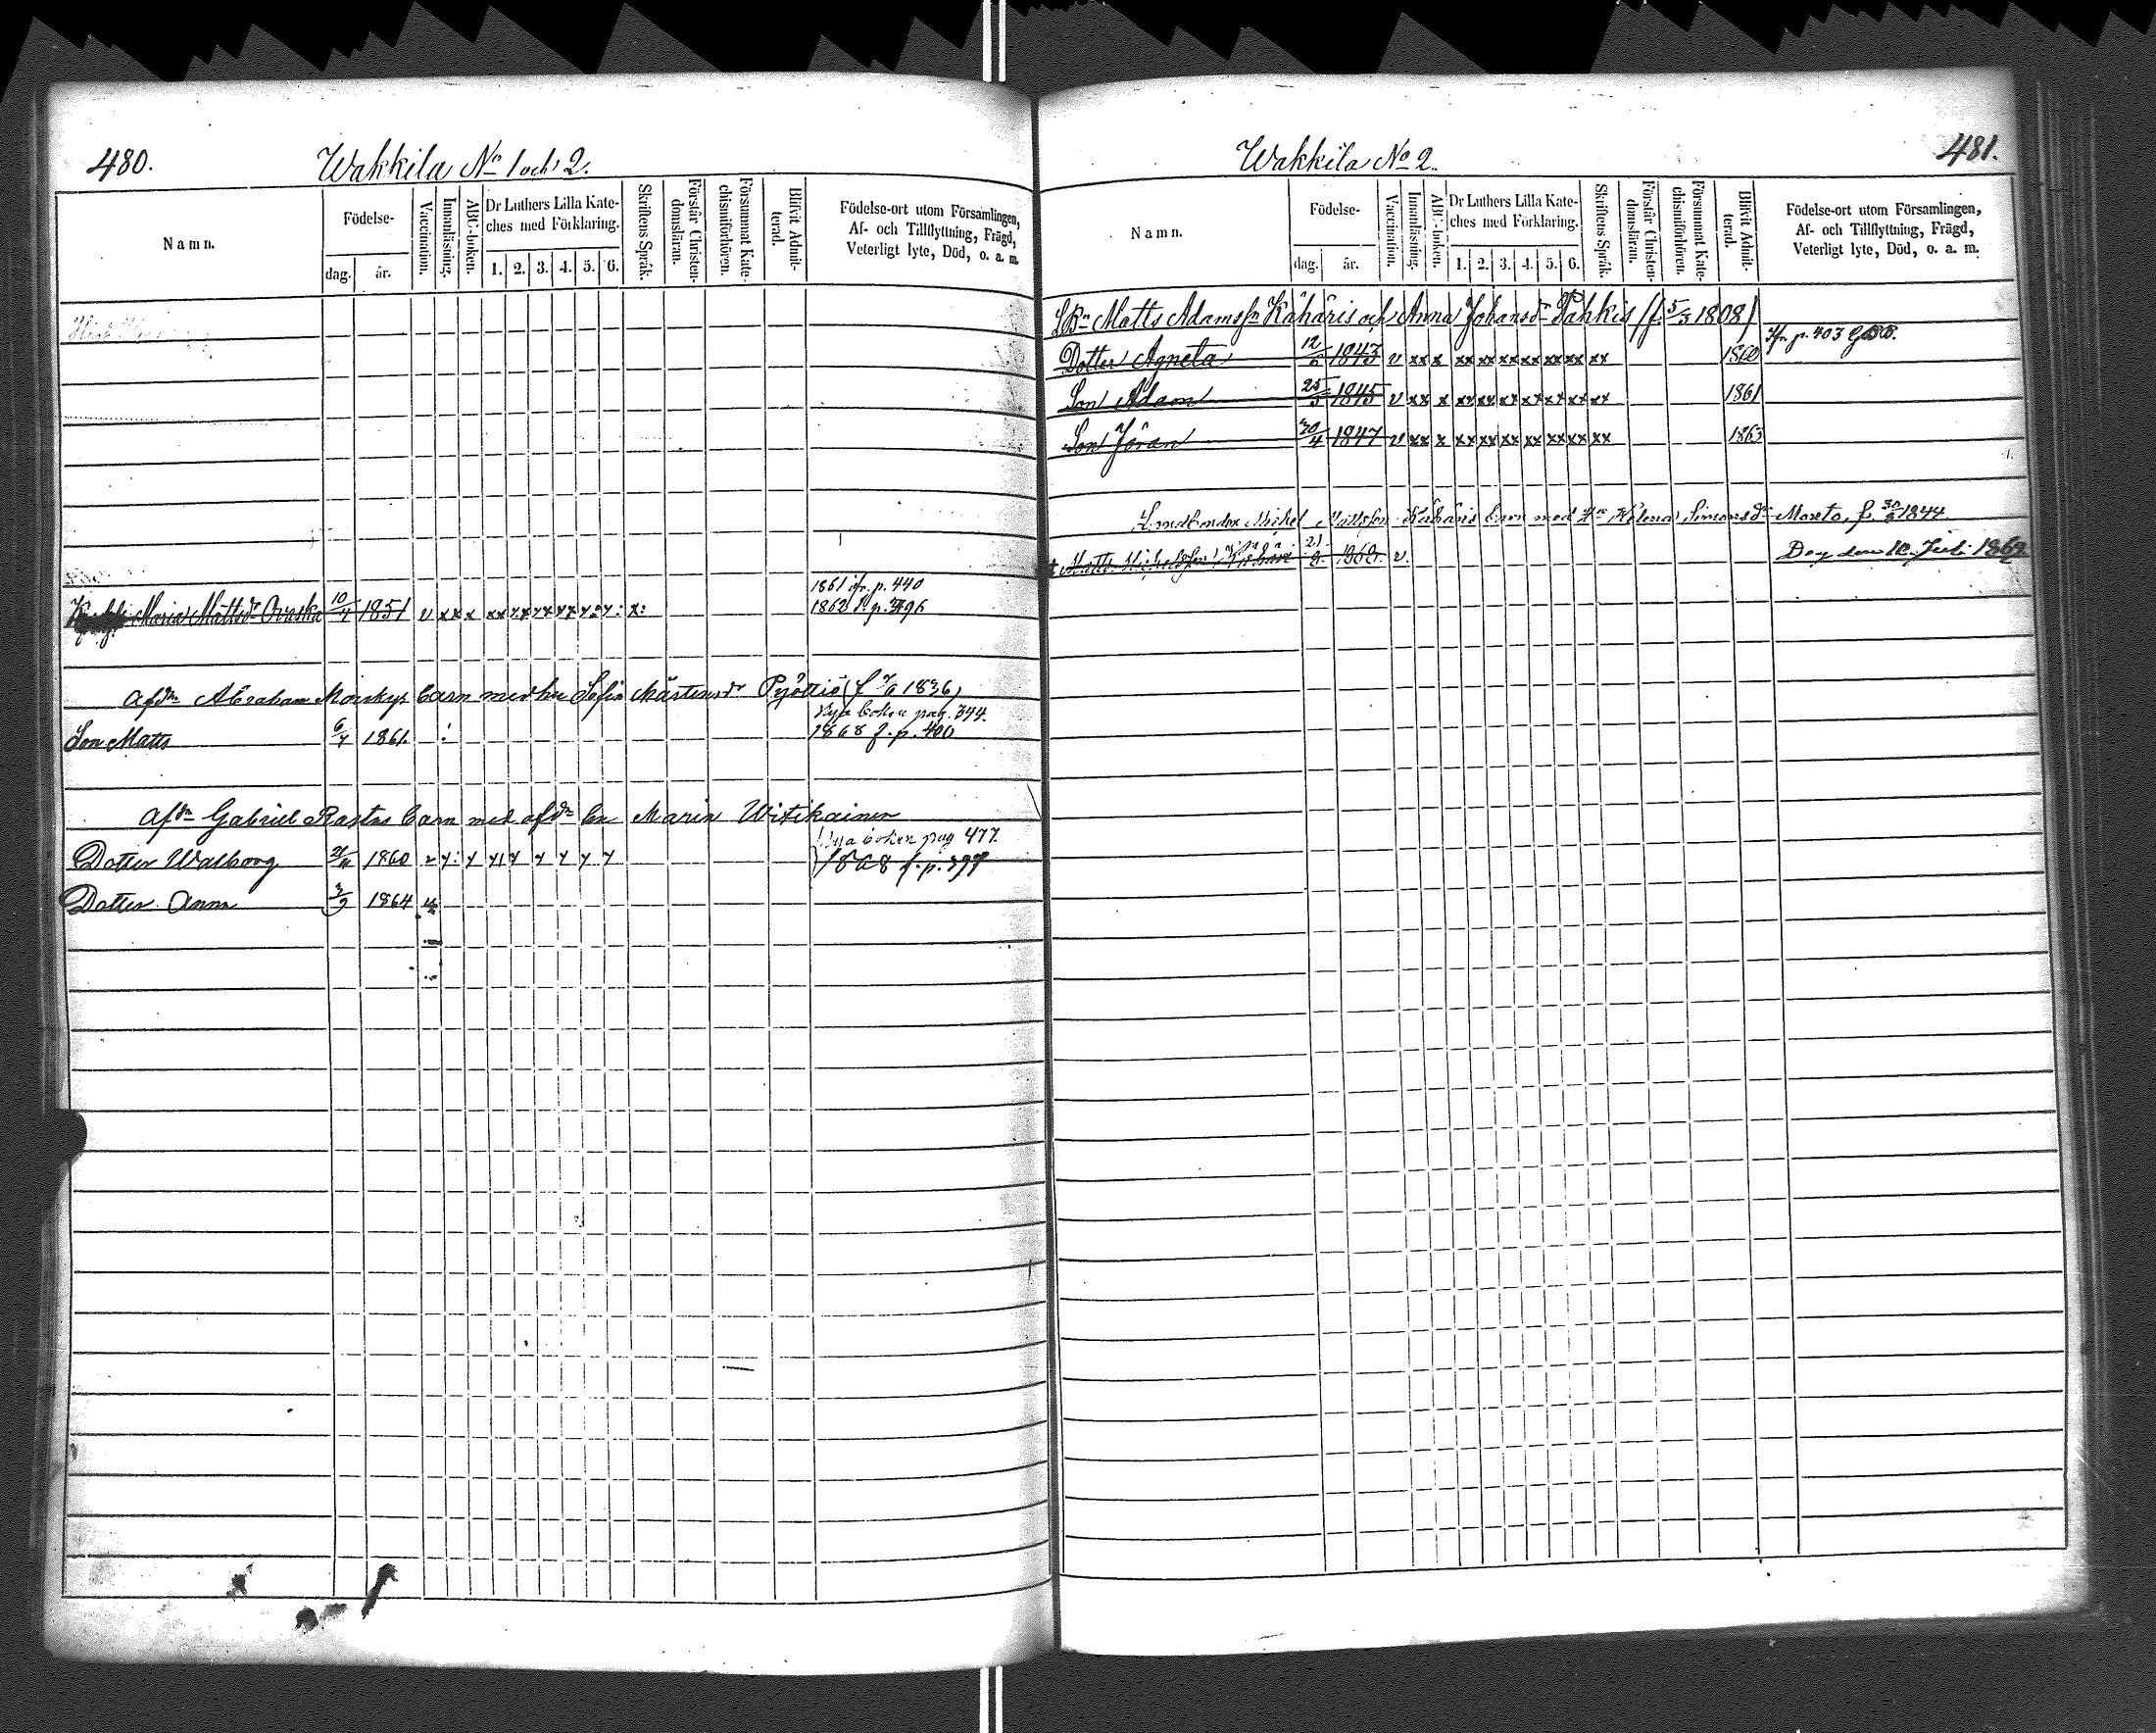 480.
Wakkila No 1 och 2.
Namn.
Födelse-
dag.
år.
Vaccination.
Innanläsning.
ABC-boken.
Dr Luthers Lilla Kate-
ches med Förklaring.
1. 2. 3. 4. 5. 6.
Skriftens Språk.
Förstår Christen-
domsläran.
Försummat Kate-
chismiförhören.
Blifvit Admit-
terad.
Födelse-ort utom Församlingen,
Af- och Tillflyttning, Frägd,
Veterligt lyte, Död, o. a. m.
1861 ifr. p. 440
Maria Mattsdr 10/4 1851 v xx x xx xx xx xx x: x: x: 1862
Afdn Abraham Morskys barn med hu Sofia Mårtensdr Pyöttiö 1836)
Nya boken pag. 344.
Son Matts 6/4 1861. 1868 f. p. 400
Afdn Gabriel Rastas barn med afdn hu Maria
Nya boken pag 477.
Dotter Walborg 1860 1868 f. p. 397
Dotter Anna 3/9 1864
481.
Wakkila No 2.
Namn.
Födelse-
dag.
år.
Vaccination.
Innanläsning.
ABC-boken.
Dr Luthers Lilla Kate-
ches med Förklaring.
1. 2. 3. 4. 5. 6.
Skriftens Språk.
Förstår Christen-
domsläran.
Försummat Kate-
chismiförhören.
Blifvit Admit-
terad.
Födelse-ort utom Församlingen,
Af- och Tillflyttning, Frägd,
Veterligt lyte, Död, o. a. m.
LBn Matts Adamssn Kähäris och Anna Johansdr Pahkis (f. 5/3 1808)
ifr p. 403
Dotter Agneta 12/6 1843 v xx x xx xx xx xx xx xx xx 1860
Son Adam 25/3 1845 v xx x xx xx xx xx xx xx xx 1861
Son Jöran 30/4 1847 v xx x xx xx xx xx xx xx xx 1863
Landbonden Michel Mattsson Kähäris barn med Hu Helena Simonsdr 1844
Matts 21/2 1868. v. Dog den 10 Juli 1869